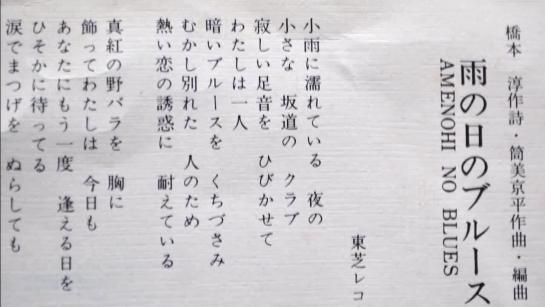 橋本 淳作詩・筒美京平作曲・編曲
雨の日のブルース
AMENOHI NO BLUES
東芝レコ
小雨に濡れている 夜の
小さな 坂道の クラブ
寂しい足音を ひびかせて
わたしは一人
暗いブルースを くちづさみ
むかし別れた 人のため
熱い恋の誘惑に 耐えている
真紅の野バラを 胸に
飾ってわたしは 今日も
あなたにもう一度 逢える日を
ひそかに待ってる
涙でまつげを ぬらしても